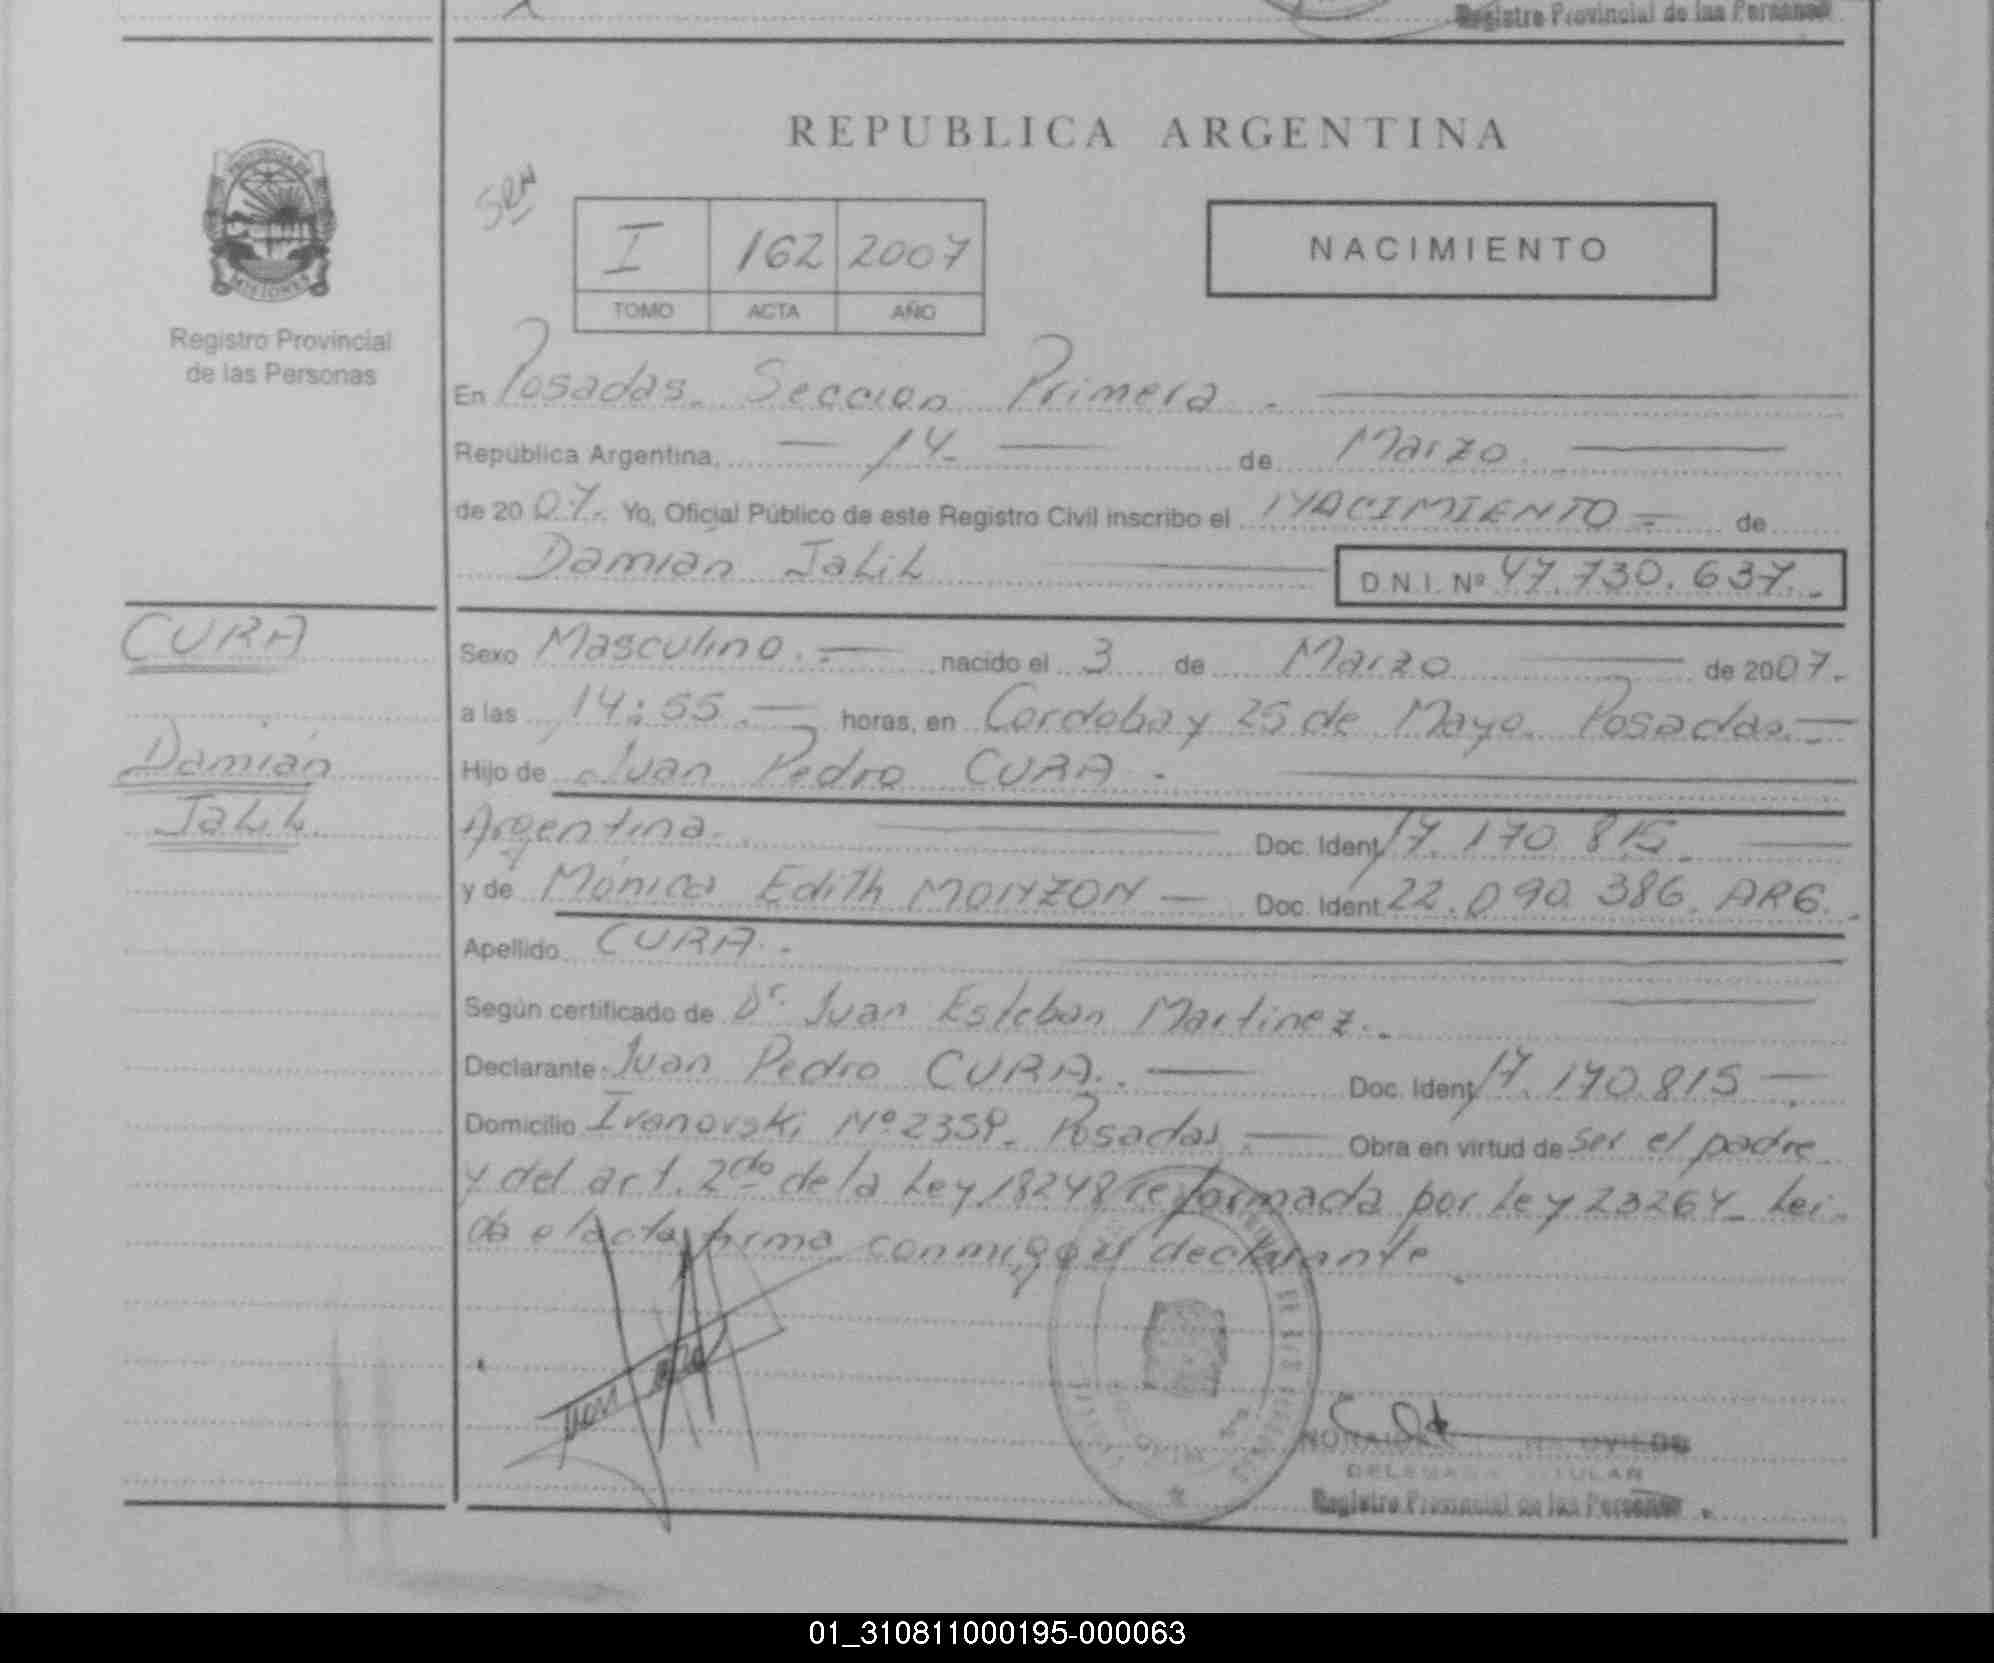 Registro Provincial de las Personas
PROVINCIA DE
MISIONES
Registro Provincial
de las Personas
REPUBLICA ARGENTINA
SRN
I 162 2007
TOMO ACTA AÑO
NACIMIENTO
En Posadas. Seccion Primera.
República Argentina, 14 de Marzo.
de 2007. Yo, Oficial Público de este Registro Civil inscribo el NACIMIENTO de
Damián Jalil D.N.I. Nº 47.730.637.
CURA
Damián
Jalil
Sexo Masculino. nacido el 3 de Marzo de 2007.
a las 14:55. horas, en Cordoba y 25 de Mayo. Posadas.
Hijo de Juan Pedro CURA.
Argentina. Doc. Ident. 17.170.815.
y de Mónica Edith MONZON Doc. Ident. 22.090.386. ARG.
Apellido CURA.
Según certificado de Dr. Juan Esteban Martinez.
Declarante Juan Pedro CURA. Doc. Ident. 17.170.815
Domicilio Ivanovski Nº 2359. Posadas Obra en virtud de ser el padre
y del art. 2do de la Ley 18248 reformada por Ley 23264_ Lei-
da el acta firma conmigo el declarante.
OVIEDO
TITULAR
Registro Provincial de las Personas
01_310811000195-000063